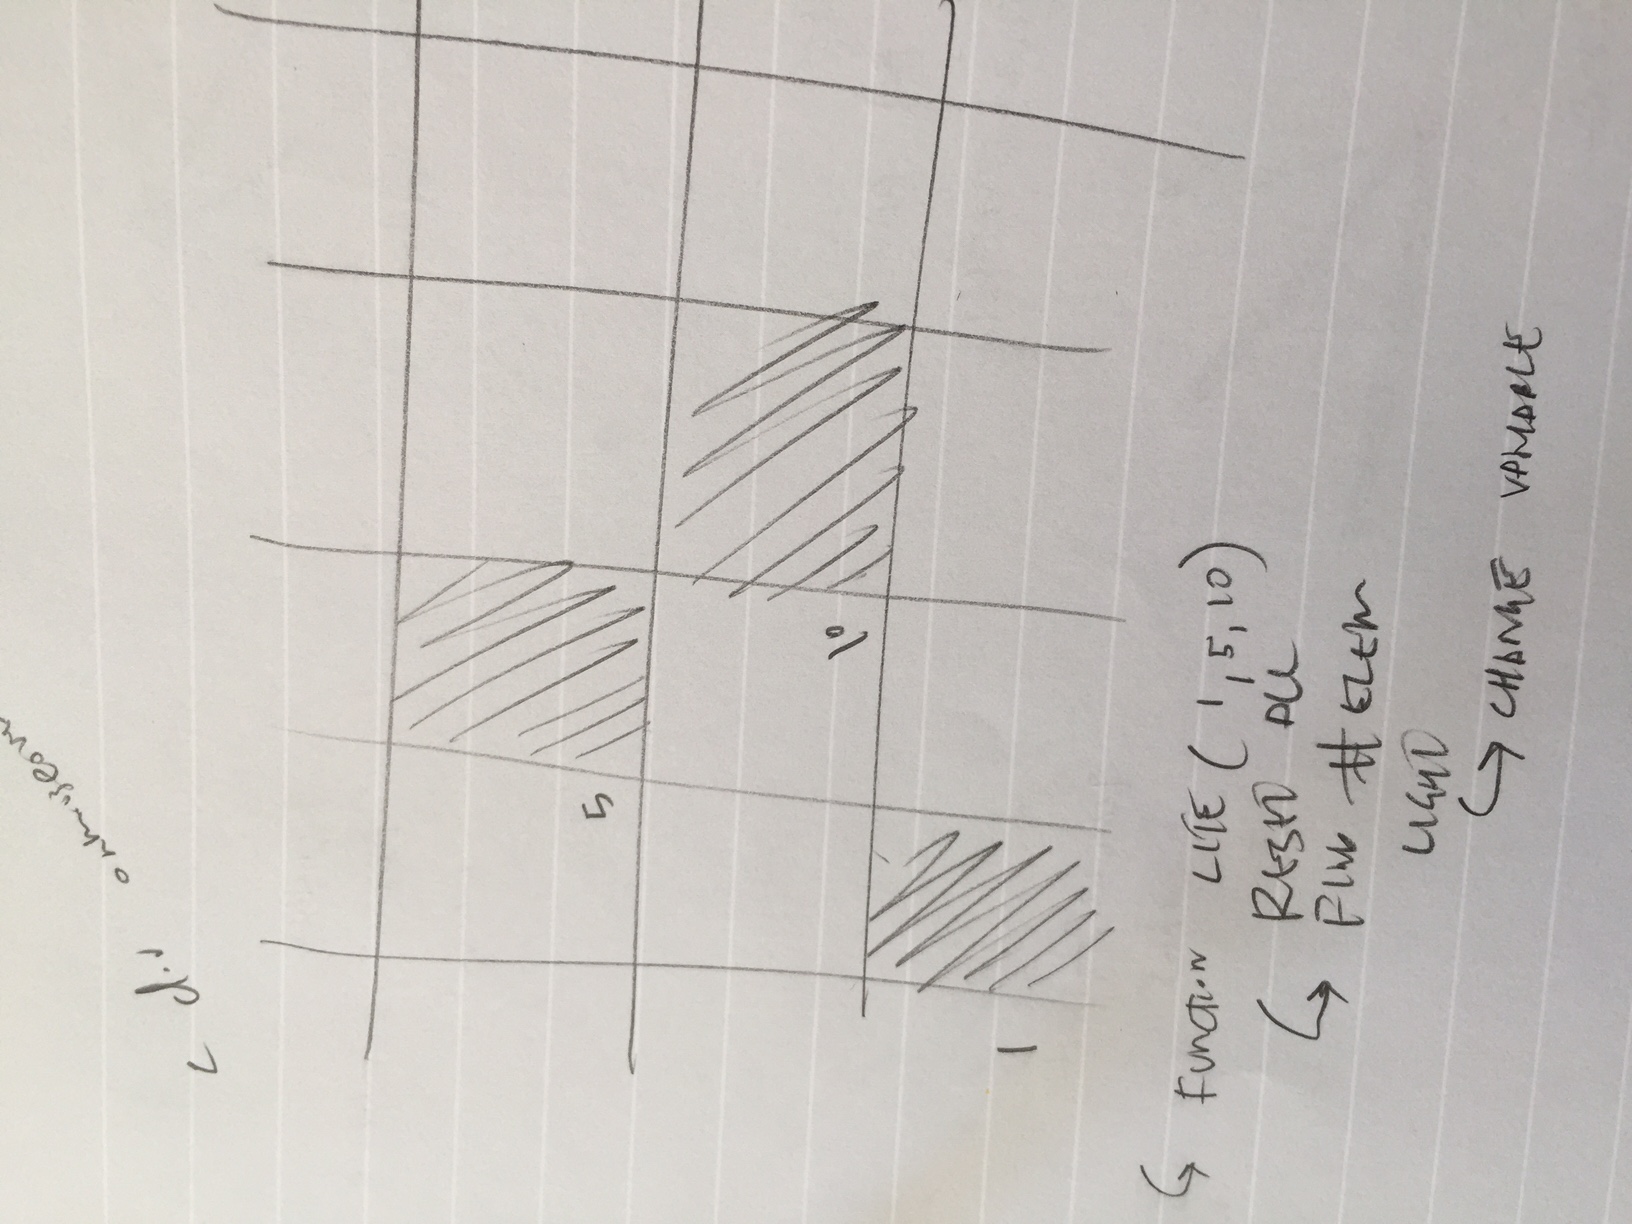 < div onmouseov
5
10
1
FUNCTION LITE ( 1, 5, 10)
RESET ALL
FIND # ELEM
LIGHT
CHANGE VARIABLE